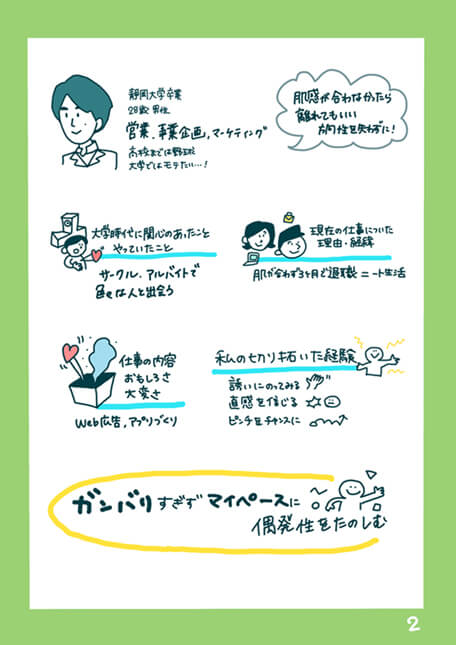 静岡大学卒業
28歳 男性
営業、事業企画、マーケティング
高校までは野球
大学ではモテたい…!
肌感が合わなかったら
離れてもいい
方向性を失わずに!
大学時代に関心のあったこと
やっていたこと
サークル、アルバイトで
色々な人と出会う
現在の仕事についた
理由・経緯
肌が合わず3ヶ月で退職 ニート生活
仕事の内容
おもしろさ
大変さ
Web広告、アプリづくり
私の切り拓いた経験
誘いにのってみる
直感を信じる
ピンチをチャンスに
ガンバりすぎず マイペースに
偶発性をたのしむ
2